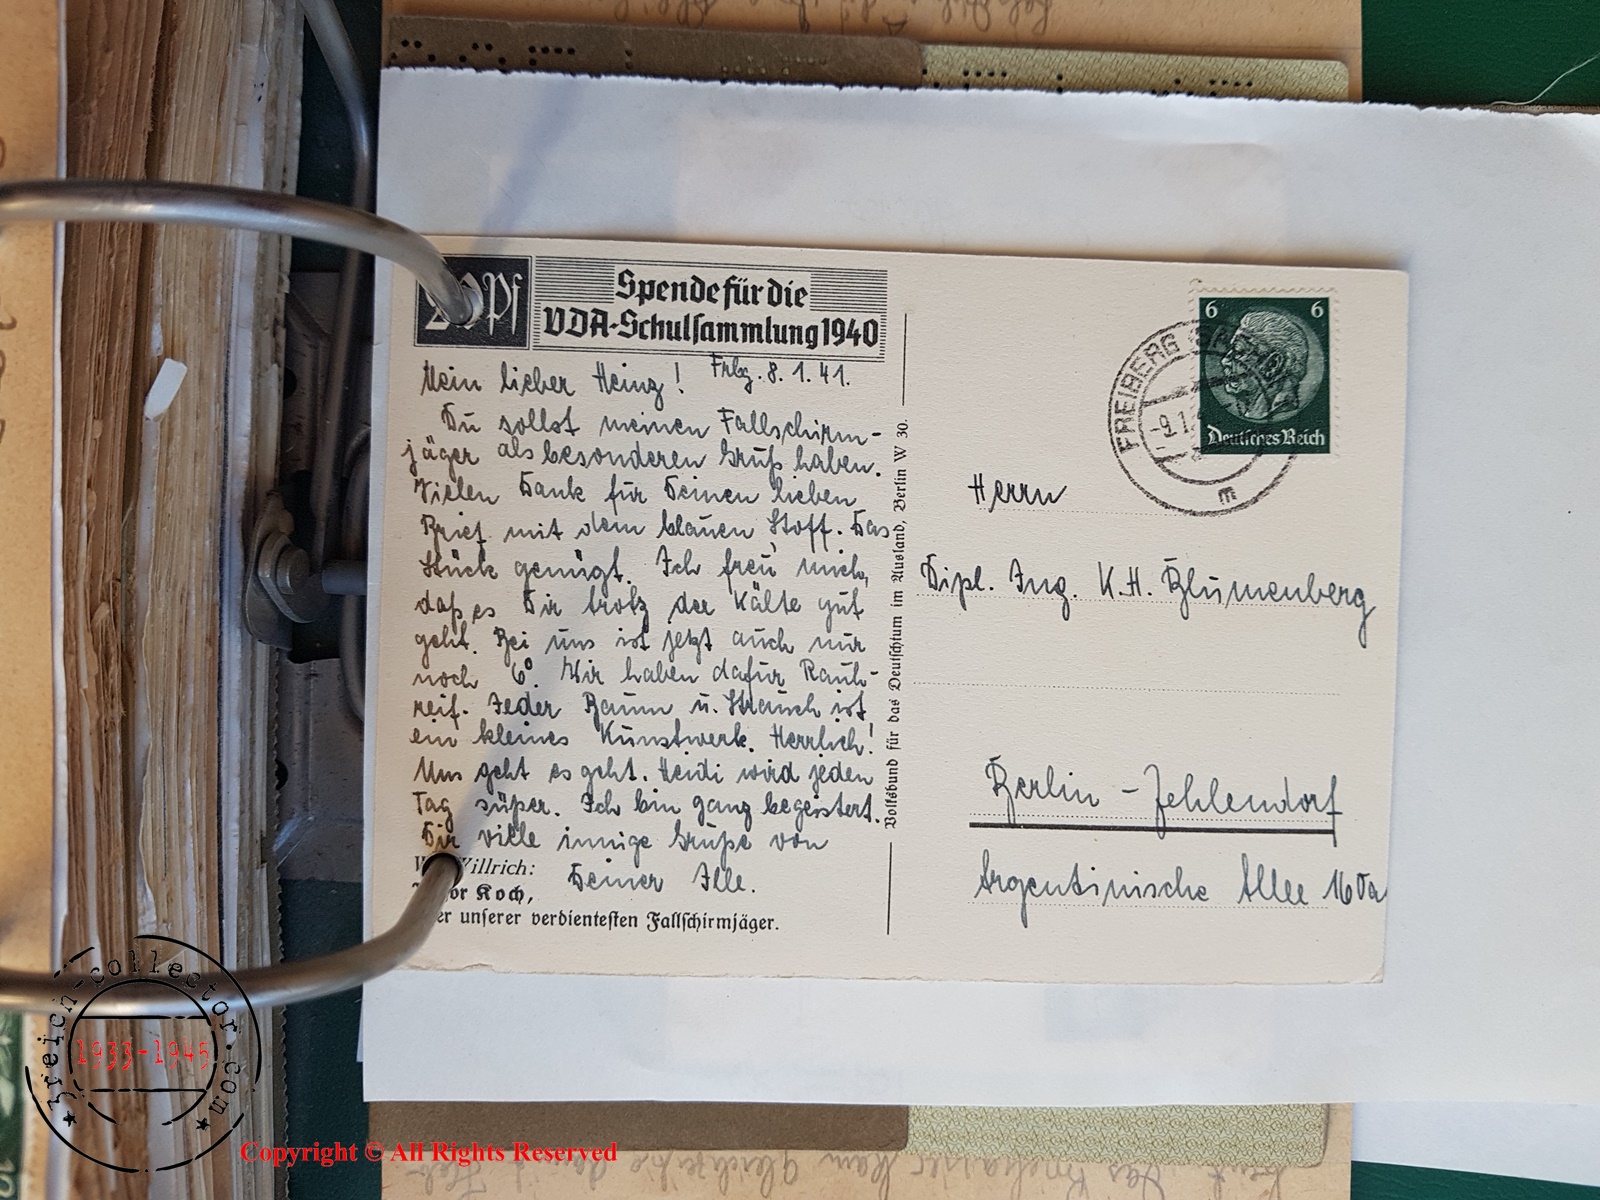 Pf
Spende für die
VDA-Schulsammlung 1940
Mein lieber Heinz! Frbg. 8. 1. 41.
Du sollst meinen Fallschirm-
jäger als besonderen Gruß haben.
Vielen Dank für Deinen lieben
Brief mit dem blauen Stoff. Das
Stück genügt. Ich freu mich,
daß es Dir trotz der Kälte gut
geht. Bei uns ist jetzt auch nur
noch 6°. Wir haben dafür Rauh-
reif. Jeder Baum u. Strauch ist
ein kleines Kunstwerk. Herrlich!
Uns geht es geht. Heidi wird jeden
Tag süßer. Ich bin ganz begeistert.
Dir viele innige Grüße von
Deiner Ille.
Willrich:
Koch,
unserer verdientesten Fallschirmjäger.
Volksbund für das Deutschtum im Ausland, Berlin W 30.
6 6
Deutsches Reich
FREIBERG
-9.1.
m
Herrn
Dipl. Ing. K.H. Blumenberg
Berlin - Zehlendorf
Argentinische Allee
3reich-collector.com
1933-1945
Copyright © All Rights Reserved